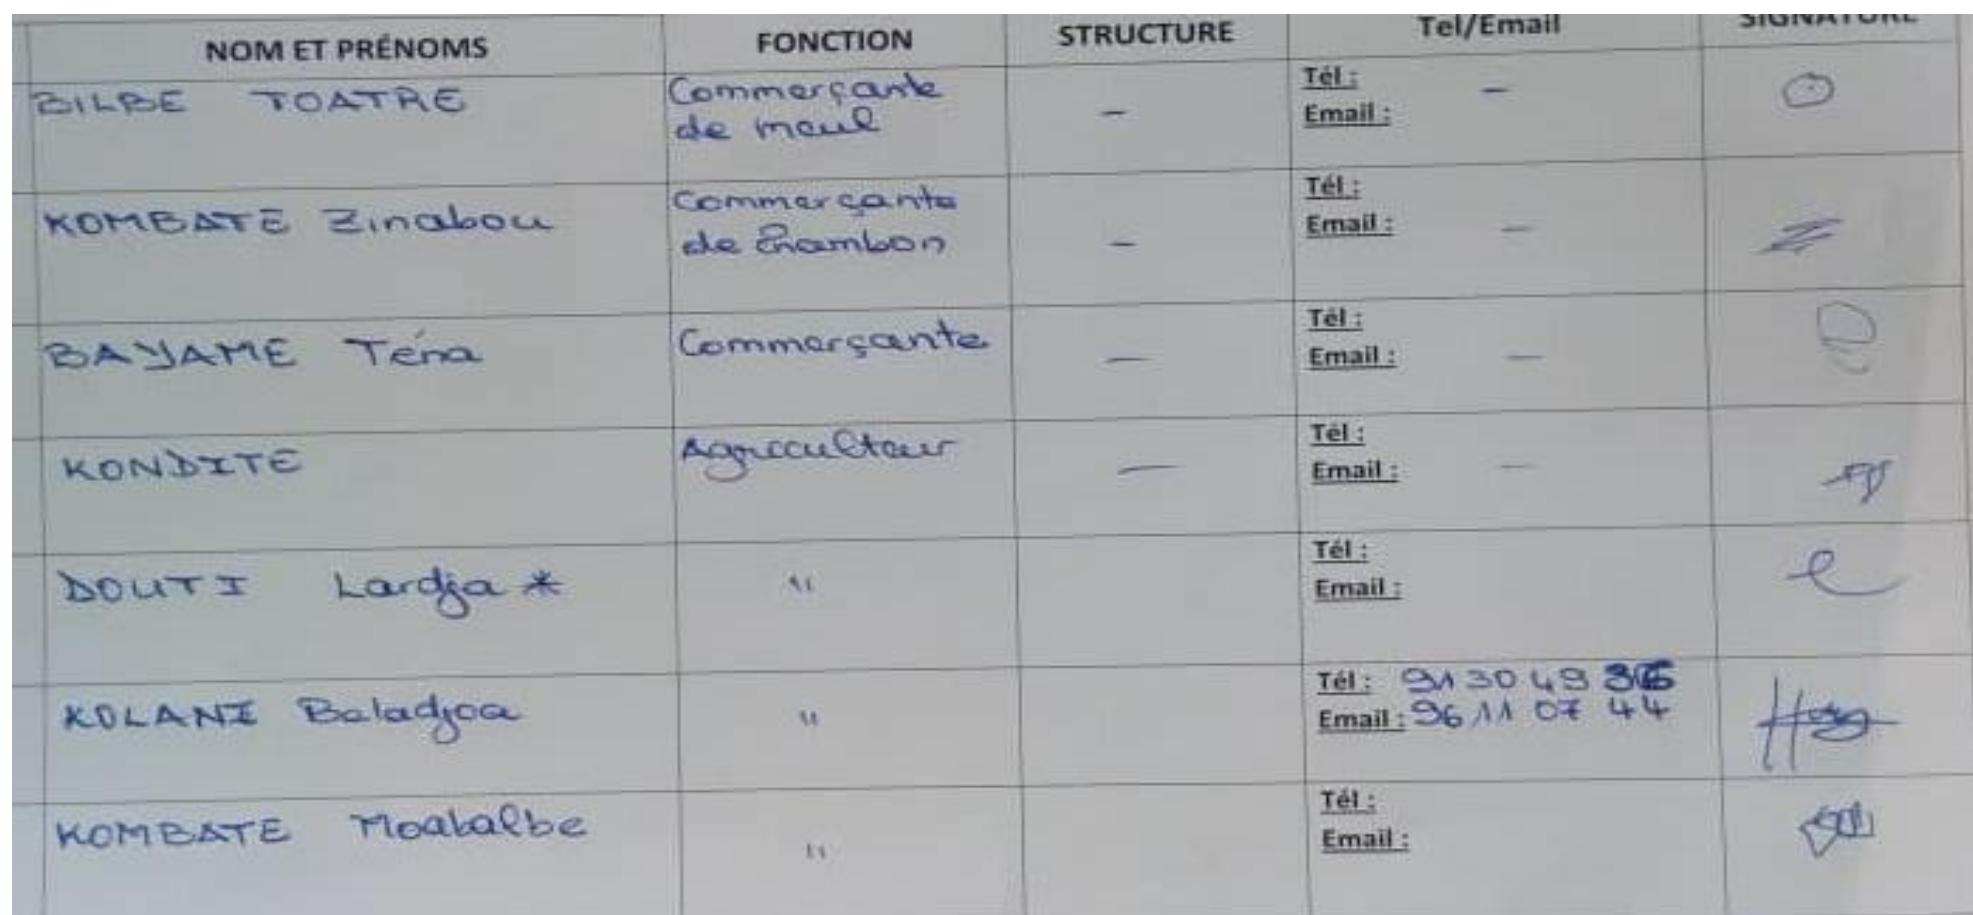 NOM ET PRÉNOMS FONCTION STRUCTURE Tel/Email SIGNATURE
BILBE TOATRE Commerçante - Tél : -
de meul Email :
KOMBATE Zinabou Commerçante Tél :
de charmbon - Email : -
BAYAME Téna Commerçante - Tél :
Email : -
KONDITE Agriculteur - Tél :
Email : -
DOUTI Lardja * " Tél :
Email :
KOLANI Baladjoa " Tél : 91 30 49
Email : 96 11 07 44
KOMBATE Moabalbe " Tél :
Email :